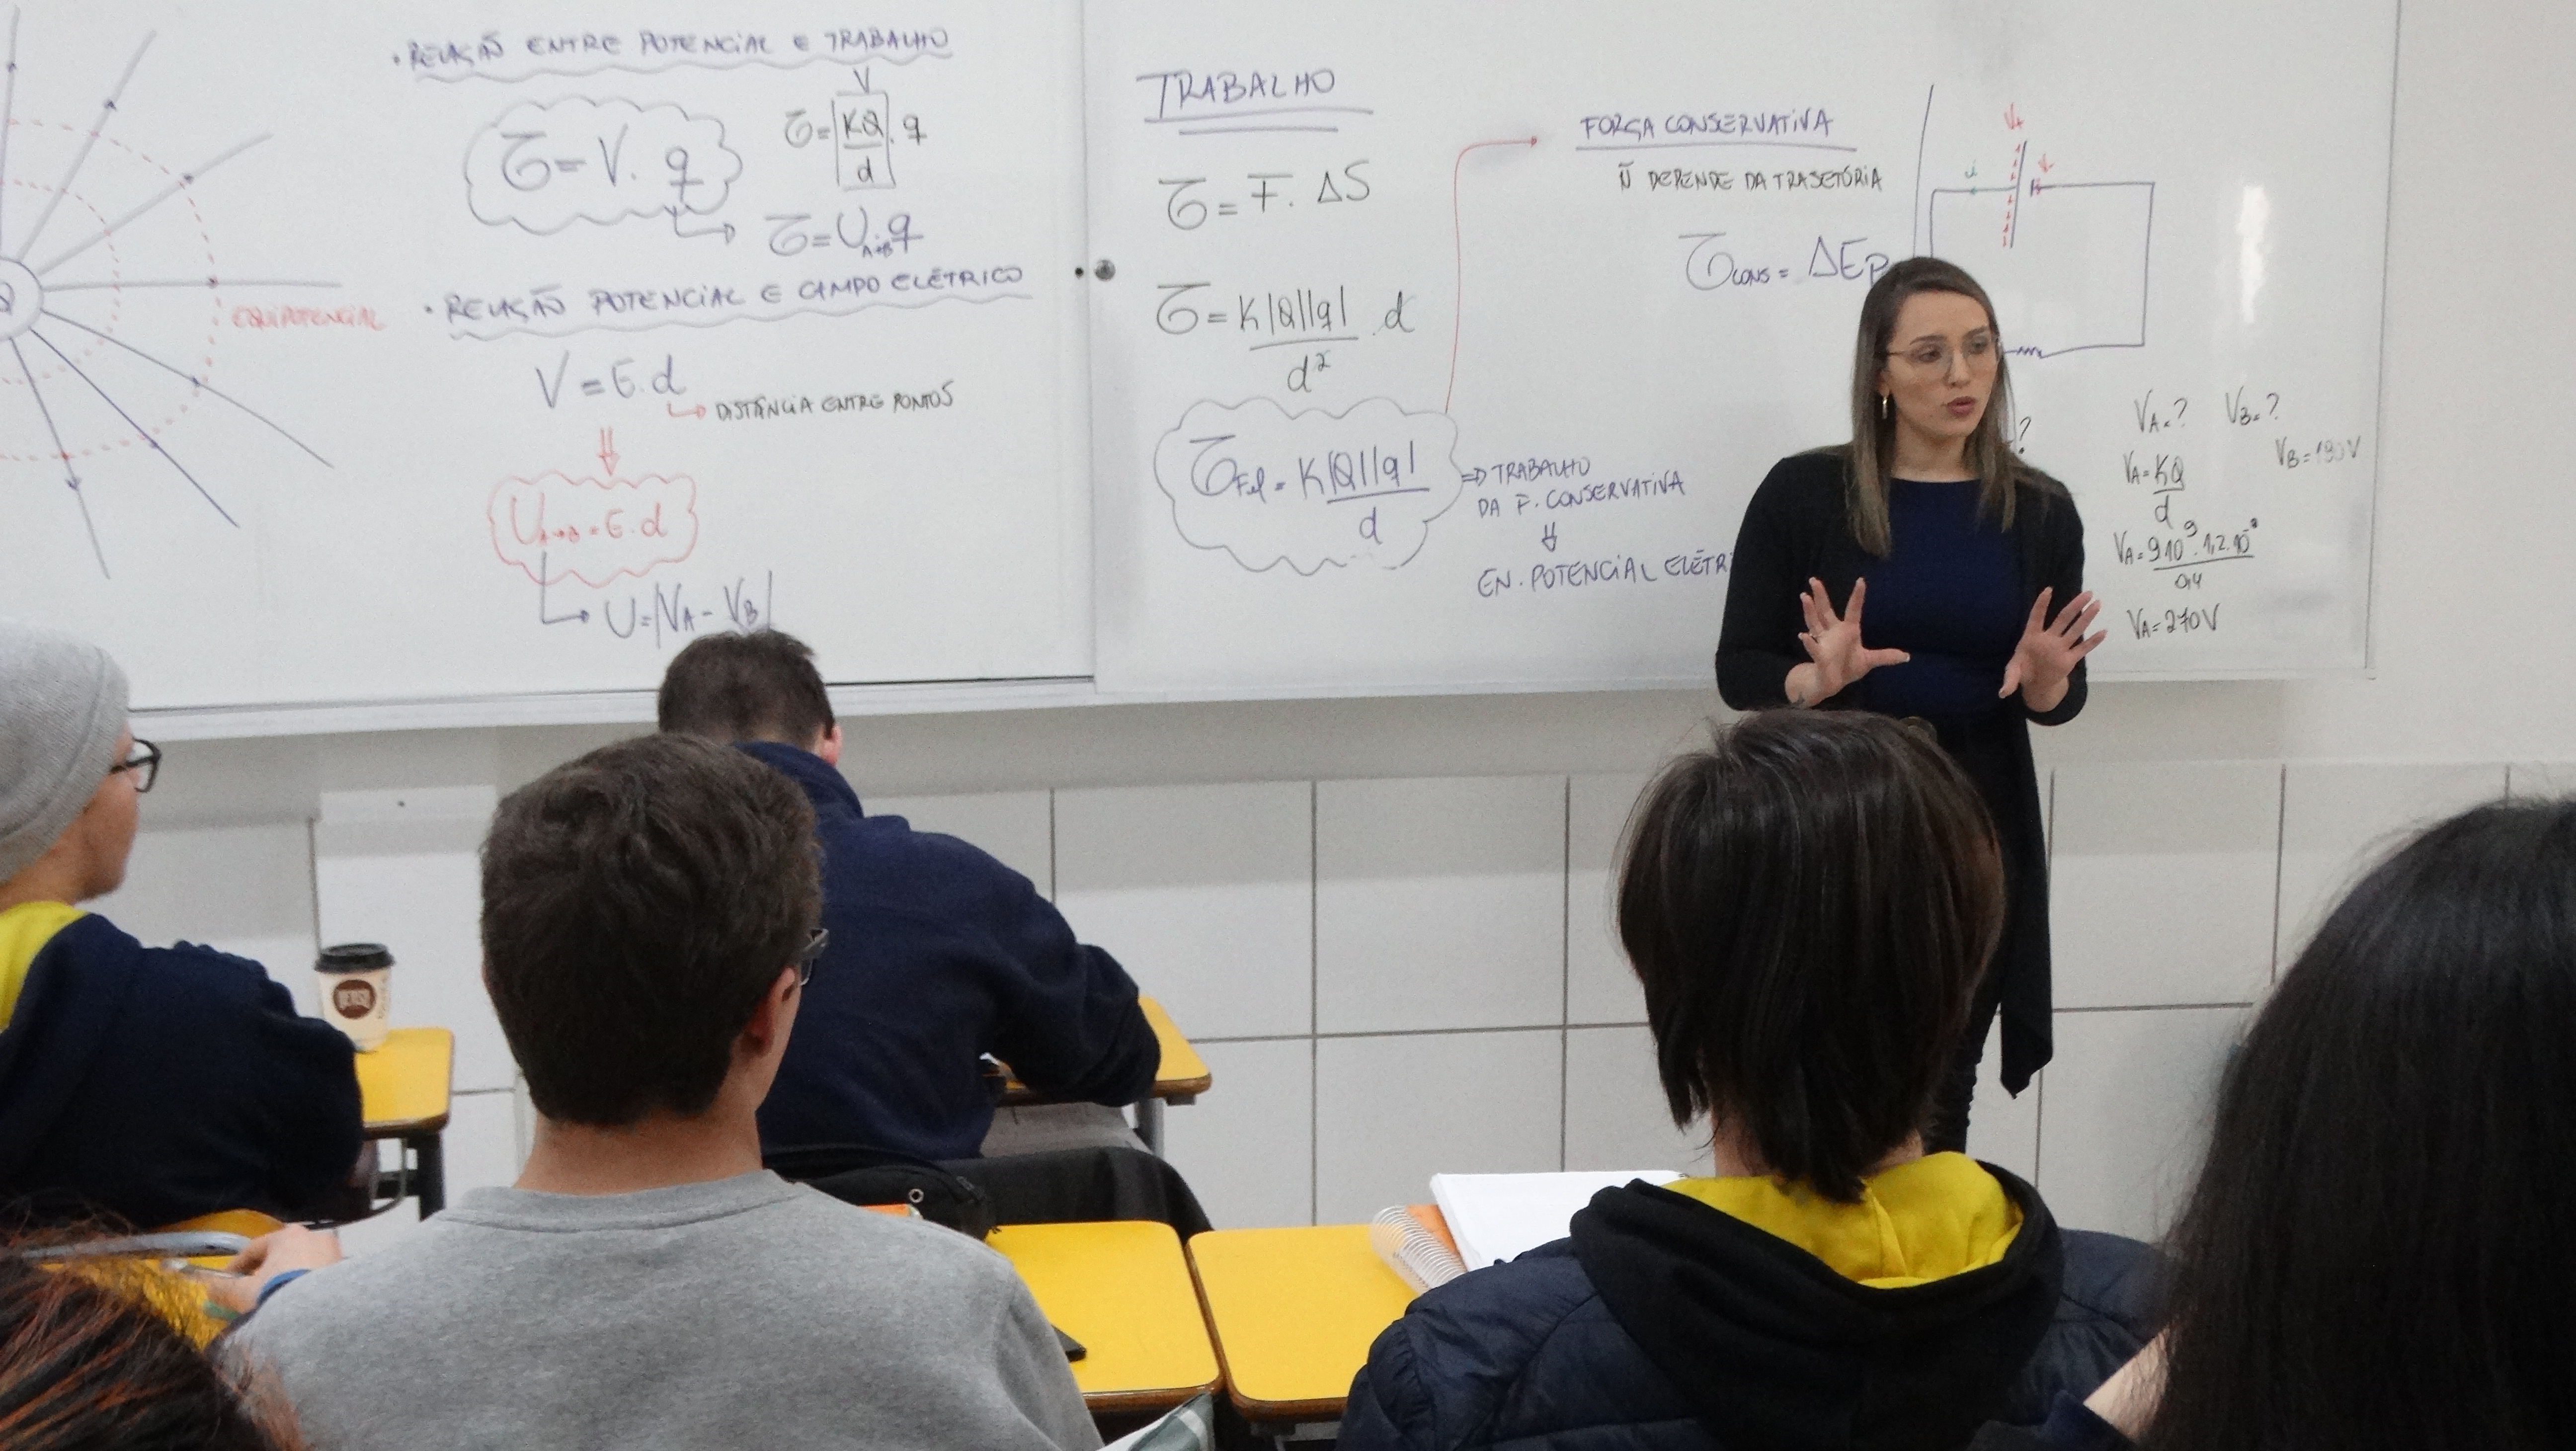 Q
EQUIPOTENCIAL
• RELAÇÃO ENTRE POTENCIAL E TRABALHO
V
τ = V. q
τ = KQ . q
d
τ = U A→B . q
• RELAÇÃO POTENCIAL E CAMPO ELÉTRICO
V = E. d
↳ DISTÂNCIA ENTRE PONTOS
⇓
U A→B = E. d
↳ U = |VA - VB|
TRABALHO
τ = F. ΔS
τ = K|Q||q| . d
d²
τFel = K|Q||q|
d
⇒ TRABALHO
DA F. CONSERVATIVA
⇓
EN. POTENCIAL ELÉTRI
FORÇA CONSERVATIVA
Ñ DEPENDE DA TRAJETÓRIA
τCONS = ΔEP
?
VA = ? VB = ?
VA = KQ
d
VB = 180V
VA = 9.10⁹ . 1,2.10⁻⁸
0,4
VA = 270V